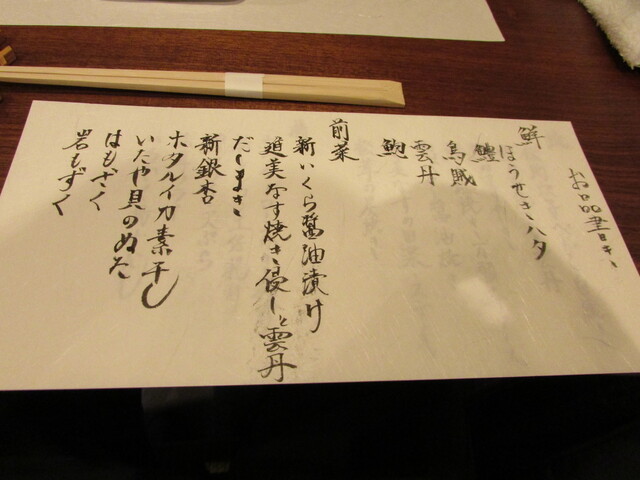 お品書き
鮮
ほうせきハタ
鱧
烏賊
雲丹
鮑
前菜
新いくら醤油漬け
造美なす焼き侵しと雲丹
だしまき
新銀杏
ホタルイカ素干し
いたや貝のぬた
はもざく
岩もずく